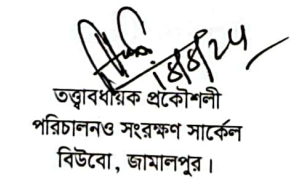 তত্ত্বাবধায়ক প্রকৌশলী
পরিচালনও সংরক্ষণ সার্কেল
বিউবো, জামালপুর।